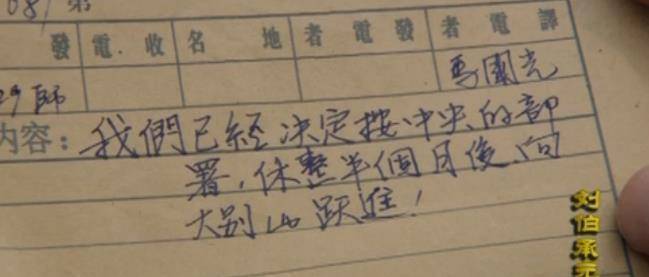 08/ 第
發電.收名地者電發者電譯
29師
馬國光
内容：我們已經決定按中央的部
署，休整半個月後，向
大别山跃進！
刘伯承元